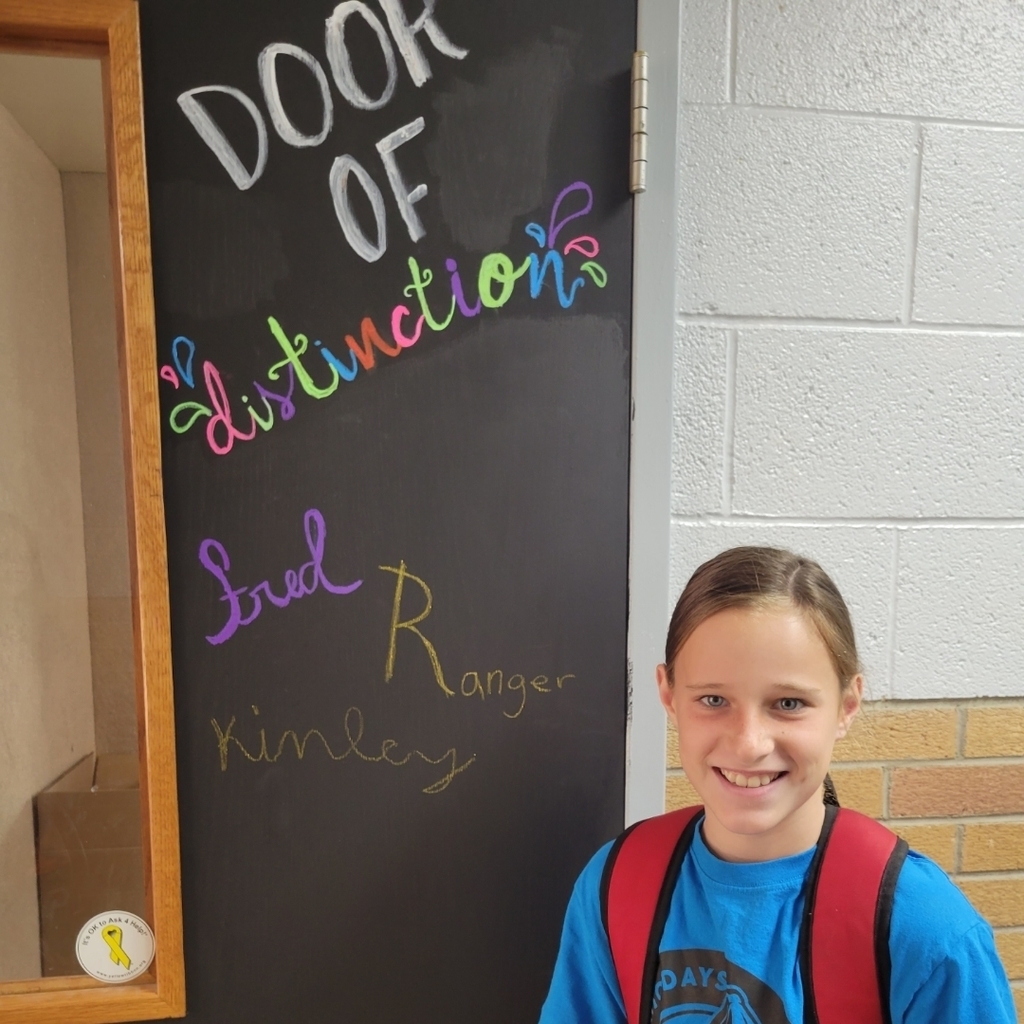 DOOR
OF
distinction
Fred
Ranger
Kinley
It's OK to Ask 4 Help!
DAYS